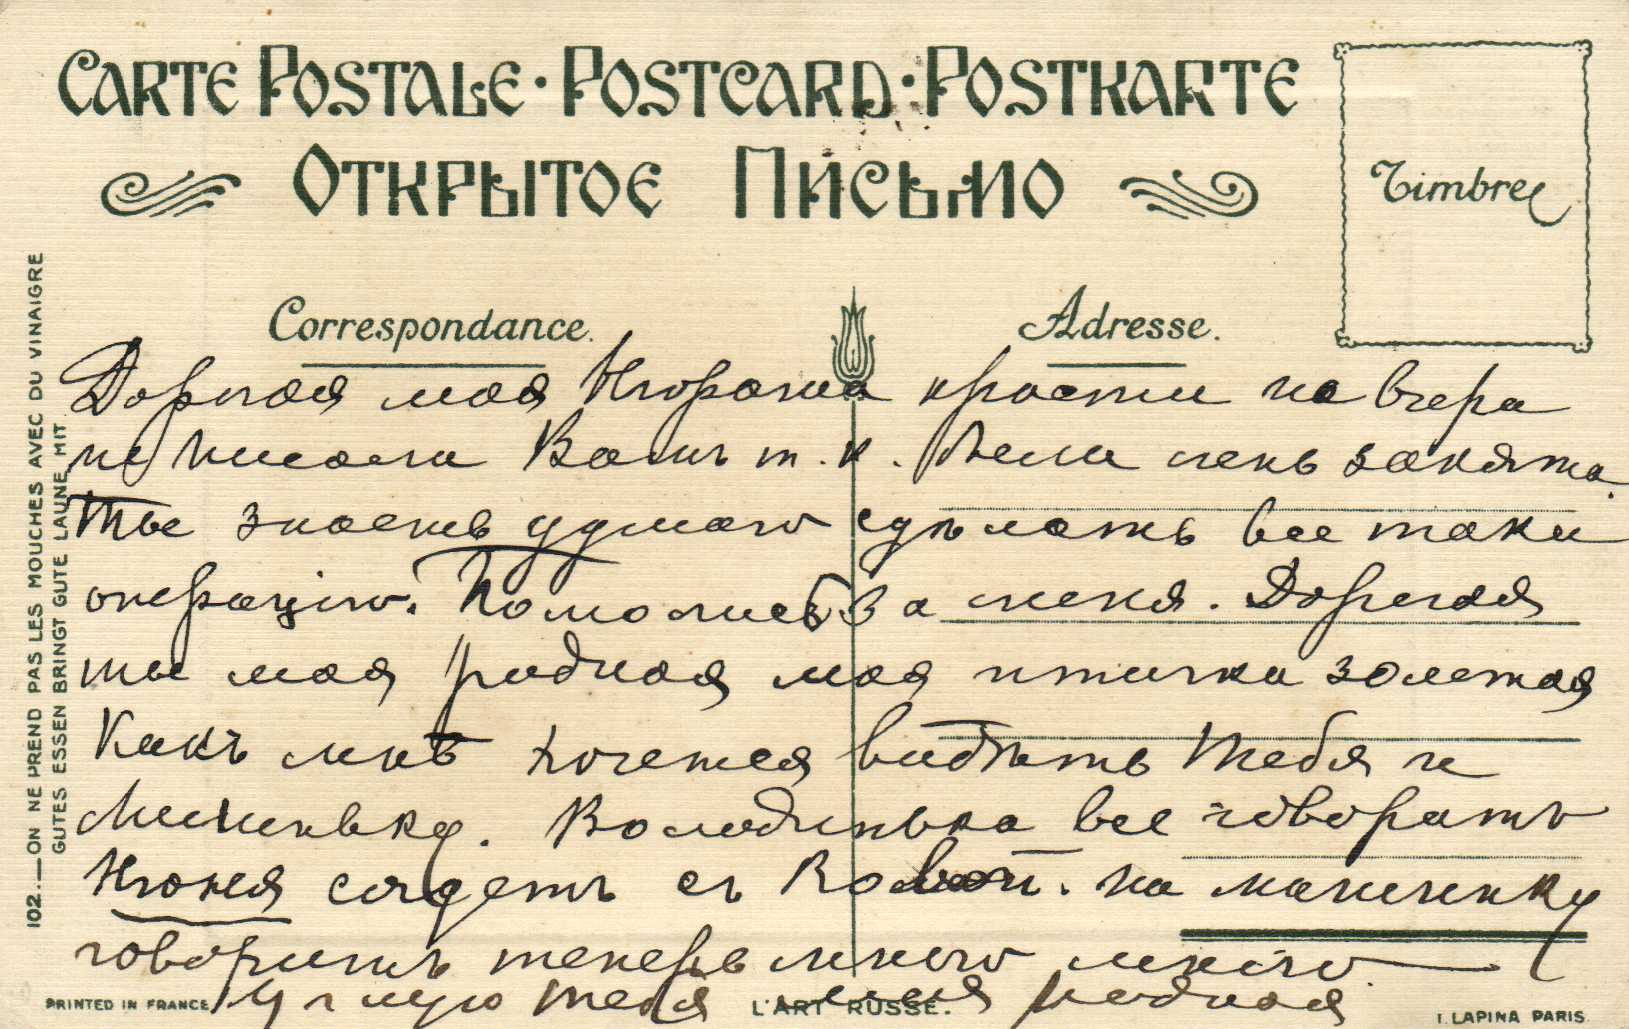 CARTE POSTALE · POSTCARD · POSTKARTE
ОТКРЫТОЕ ПИСЬМО
Timbre
Correspondance.
Adresse.
Дорогая моя Нюрочка прости что вчера
не писала Вамъ т. к. была занята.
Ты знаешь думаю сдѣлать все таки
операцію. Помолись за меня. Дорогая
ты моя родная моя птичка золотая
Какъ мнѣ хочется видѣть тебя и
Мишеньку. Володинька все говоритъ
Нюня съ Вовой. на
говоритъ теперь много много
цѣлую тебя моя родная
102.—ON NE PREND PAS LES MOUCHES AVEC DU VINAIGRE
GUTES ESSEN BRINGT GUTE LAUNE MIT
PRINTED IN FRANCE
L'ART RUSSE.
I. LAPINA PARIS